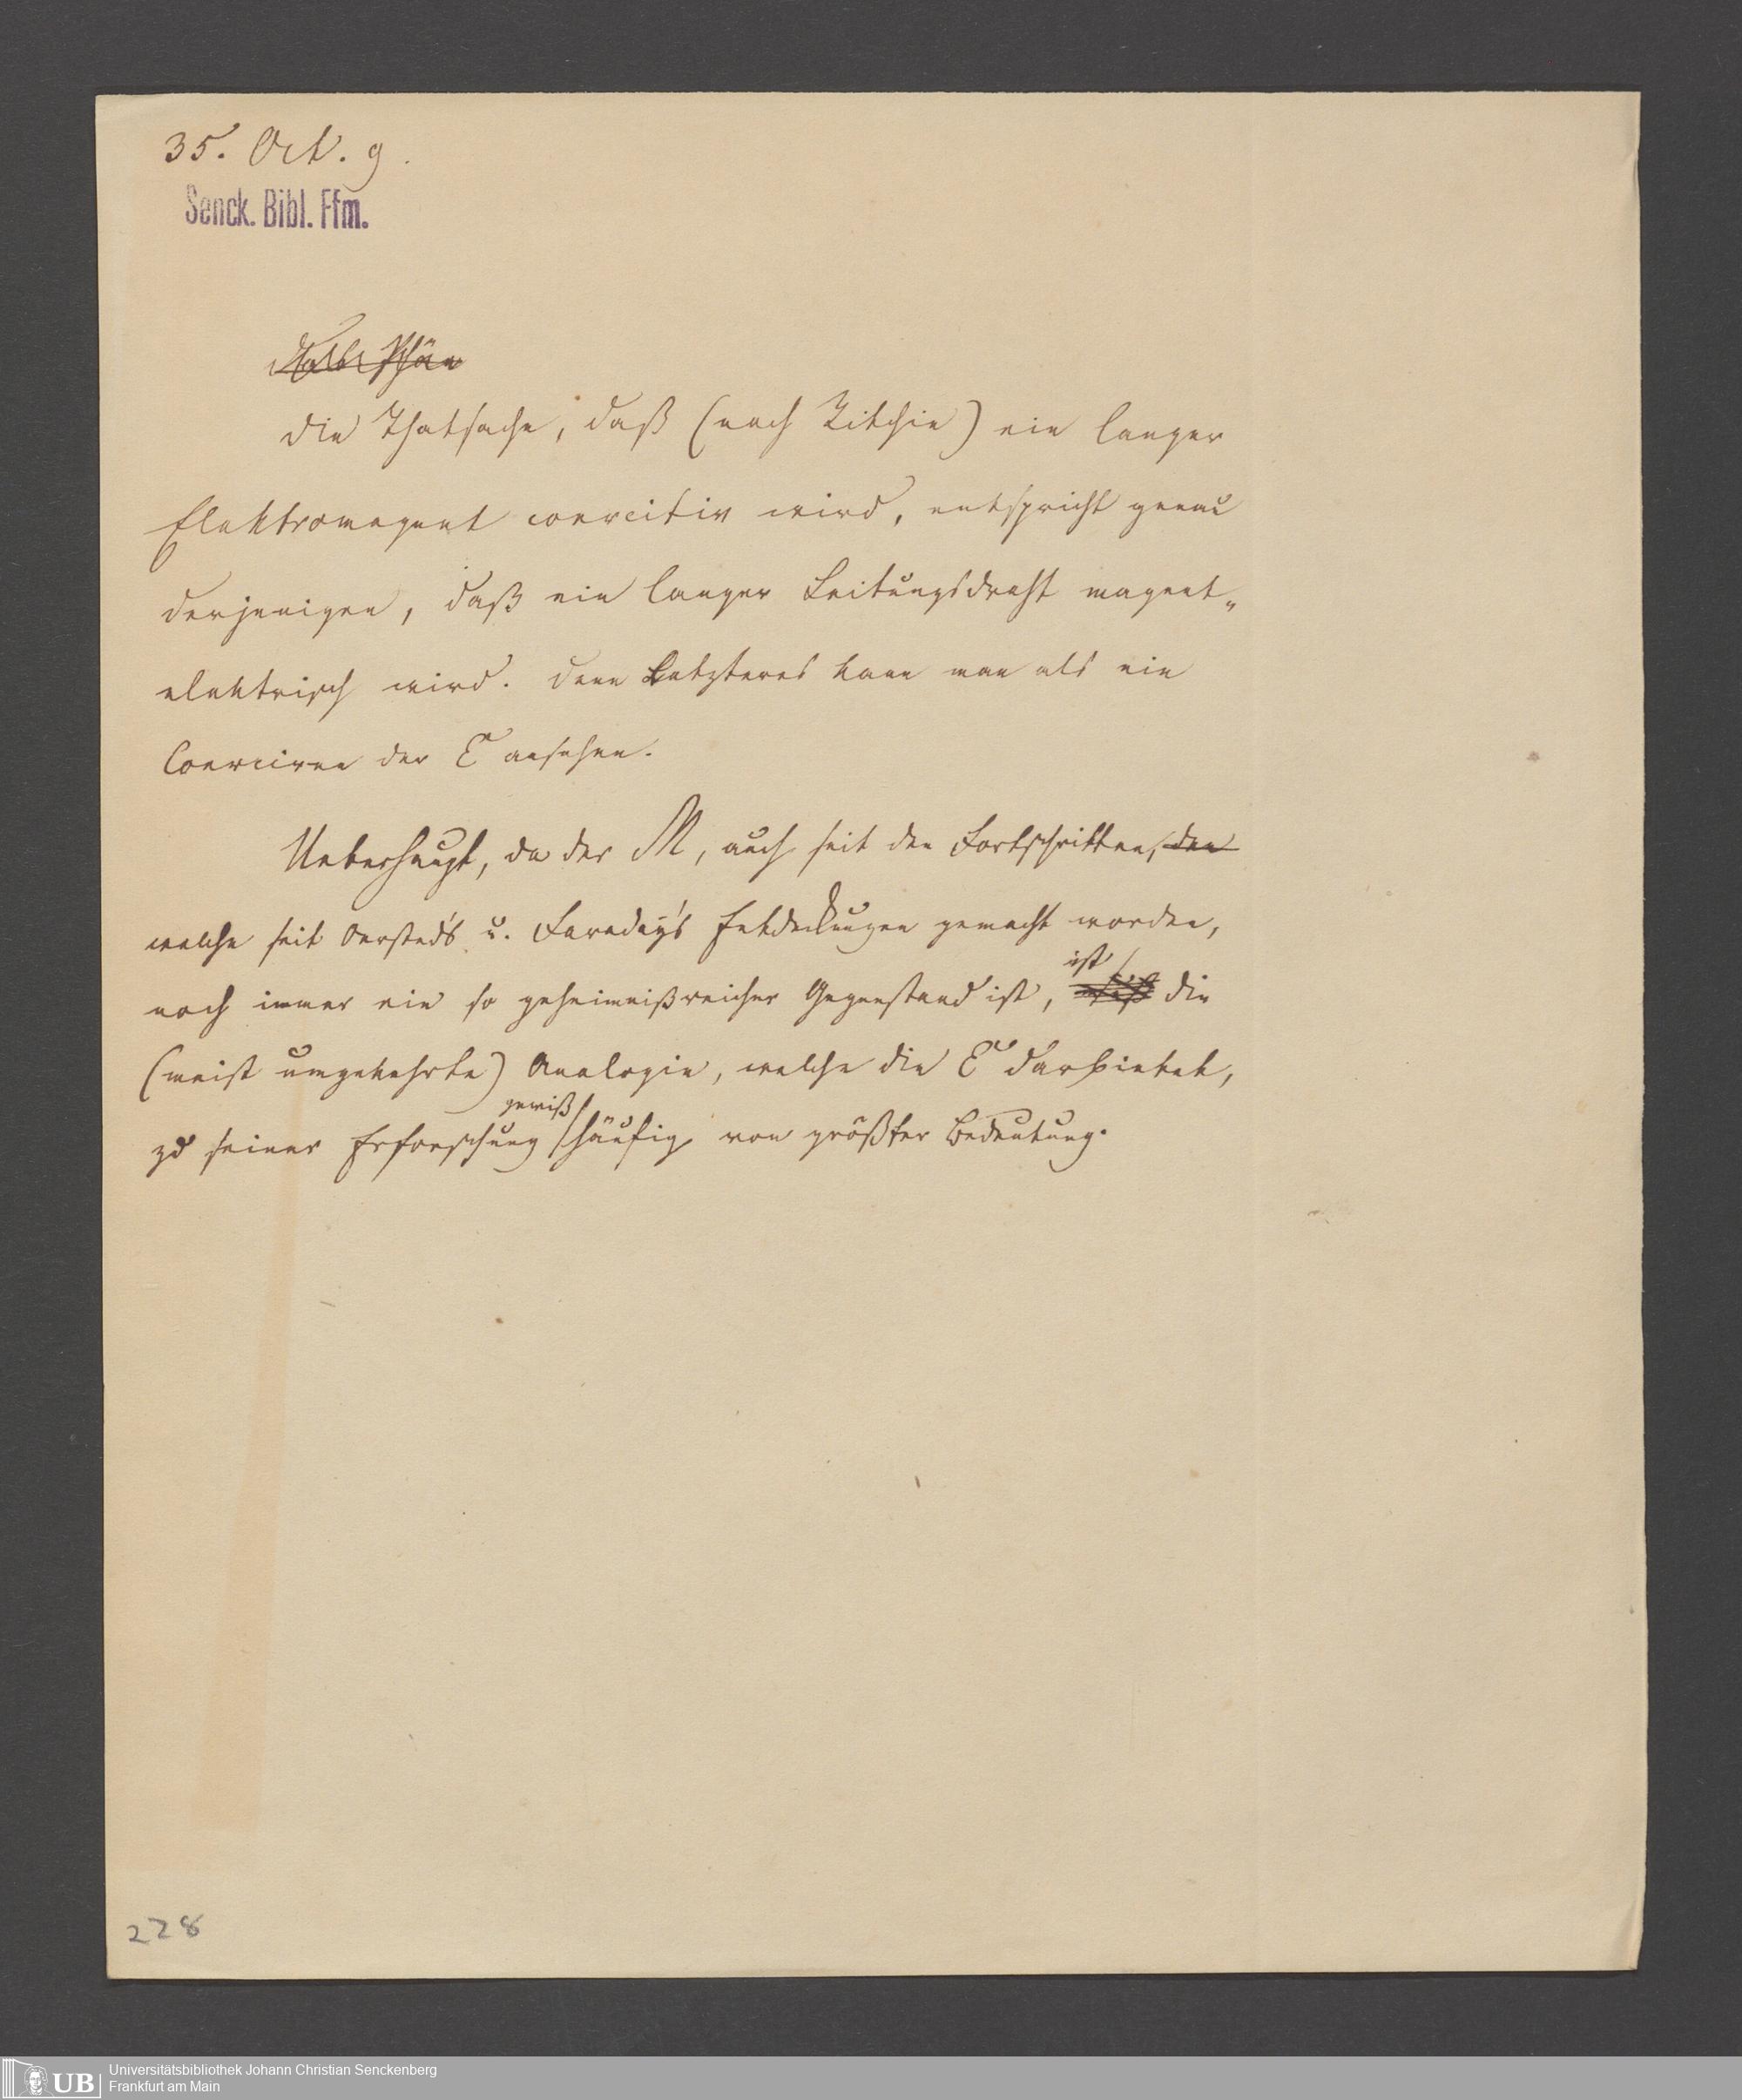 35. Oct. 9.
Senck. Bibl. Ffm.
Die Thatsache, daß (nach Ritchie) ein langer
Elektromagnet coercitiv wird, entspricht genau
derjenigen, daß ein langer Leitungsdraht magnet„
elektrisch wird. Denn Letzteres kann man als ein
Coerciren der E ansehen.
Ueberhaupt, da der M, auch seit den Fortschritten, den
welche seit Oersted's u. Faraday's Entdeckungen gemacht worden,
noch immer ein so geheimnißreicher Gegenstand ist, ist die
(meist umgekehrte) Analogie, welche die E darbietet,
zu seiner Erforschung gewiß häufig von größter Bedeutung.
228
UB Universitätsbibliothek Johann Christian Senckenberg
Frankfurt am Main